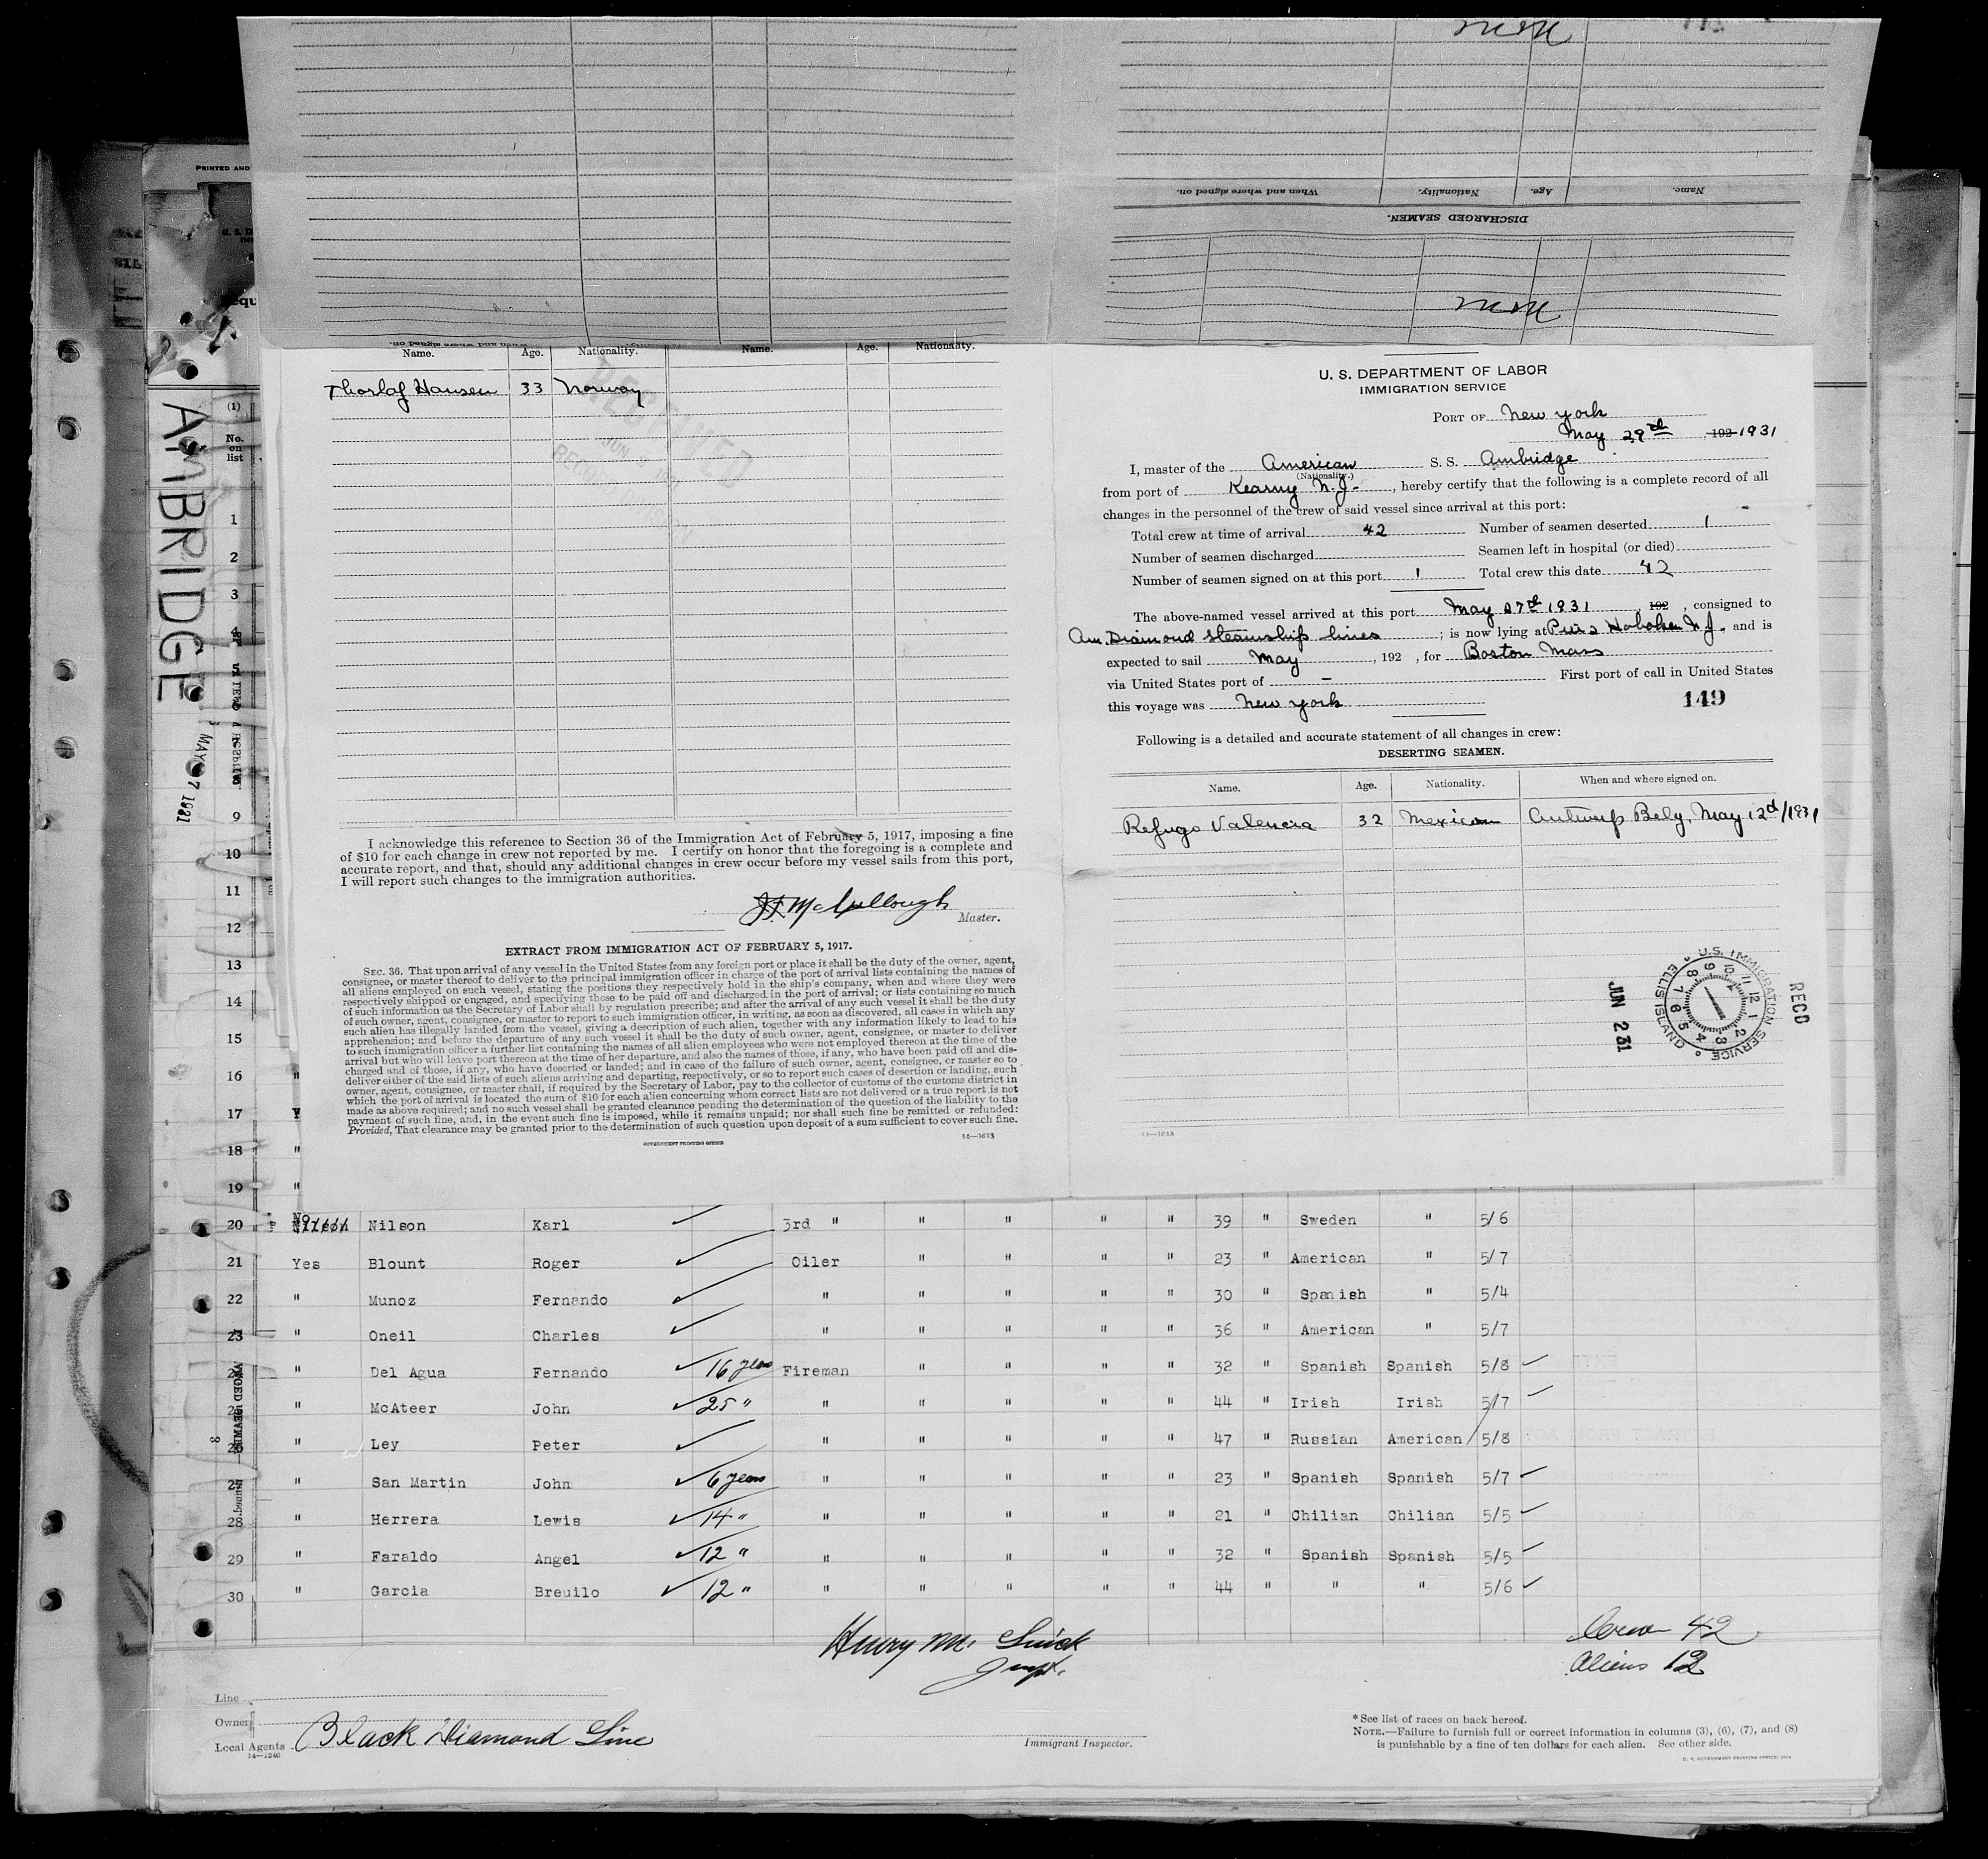 none
Name. Age. Nationality. When and where signed on.
DISCHARGED SEAMEN.
none
PRINTED AND
AMBRIDGE
MAY 27 1931
(1)
No. on list
Name. Age. Nationality. Name. Age. Nationality.
Thorlaf Hansen 33 Norway
RECEIVED
I acknowledge this reference to Section 36 of the Immigration Act of February 5, 1917, imposing a fine
of $10 for each change in crew not reported by me. I certify on honor that the foregoing is a complete and
accurate report, and that, should any additional changes in crew occur before my vessel sails from this port,
I will report such changes to the immigration authorities.
J.F. McCullough
Master.
EXTRACT FROM IMMIGRATION ACT OF FEBRUARY 5, 1917.
SEC. 36. That upon arrival of any vessel in the United States from any foreign port or place it shall be the duty of the owner, agent,
consignee, or master thereof to deliver to the principal immigration officer in charge of the port of arrival lists containing the names of
all aliens employed on such vessel, stating the positions they respectively hold in the ship's company, when and where they were
respectively shipped or engaged, and specifying those to be paid off and discharged in the port of arrival; or lists containing so much
of such information as the Secretary of Labor shall by regulation prescribe; and after the arrival of any such vessel it shall be the duty
of such owner, agent, consignee, or master to report to such immigration officer, in writing, as soon as discovered, all cases in which any
such alien has illegally landed from the vessel, giving a description of such alien, together with any information likely to lead to his
apprehension; and before the departure of any such vessel it shall be the duty of such owner, agent, consignee, or master to deliver
to such immigration officer a further list containing the names of all alien employees who were not employed thereon at the time of the
arrival but who will leave port thereon at the time of her departure, and also the names of those, if any, who have been paid off and dis-
charged and of those, if any, who have deserted or landed; and in case of the failure of such owner, agent, consignee, or master so to
deliver either of the said lists of such aliens arriving and departing, respectively, or so to report such cases of desertion or landing, such
owner, agent, consignee, or master shall, if required by the Secretary of Labor, pay to the collector of customs of the customs district in
which the port of arrival is located the sum of $10 for each alien concerning whom correct lists are not delivered or a true report is not
made as above required; and no such vessel shall be granted clearance pending the determination of the question of the liability to the
payment of such fine, and, in the event such fine is imposed, while it remains unpaid; nor shall such fine be remitted or refunded:
Provided, That clearance may be granted prior to the determination of such question upon deposit of a sum sufficient to cover such fine.
GOVERNMENT PRINTING OFFICE 14—1613
U. S. DEPARTMENT OF LABOR
IMMIGRATION SERVICE
PORT OF New York
May 29th, 192 1931
I, master of the American S. S. Ambridge
(Nationality.)
from port of Kearny N.J., hereby certify that the following is a complete record of all
changes in the personnel of the crew of said vessel since arrival at this port:
Total crew at time of arrival 42 Number of seamen deserted 1
Number of seamen discharged Seamen left in hospital (or died)
Number of seamen signed on at this port 1 Total crew this date 42
The above-named vessel arrived at this port May 27th 1931, 192 , consigned to
Am. Diamond Steamship Lines ; is now lying at Pier 2 Hoboken N.J. and is
expected to sail May , 192 , for Boston Mass
via United States port of - First port of call in United States
this voyage was New York
149
Following is a detailed and accurate statement of all changes in crew:
DESERTING SEAMEN.
Name. Age. Nationality. When and where signed on.
Refugo Valencia 32 Mexican Antwerp Belg. May 12d/1931
RECD
U.S. IMMIGRATION SERVICE ELLIS ISLAND
JUN 2 31
14—1613
1
2
3
4
5
9
10
11
12
13
14
15
16 "
17 Y
18 "
19 "
20 No Nilson Karl 3rd " " " " " 39 " Sweden " 5/6
21 Yes Blount Roger Oiler " " " " 23 " American " 5/7
22 " Munoz Fernando " " " " " 30 " Spanish " 5/4
23 " Oneil Charles " " " " " 36 " American " 5/7
24 " Del Agua Fernando 16 years Fireman " " " " 32 " Spanish Spanish 5/8
25 " McAteer John 25 " " " " " " 44 " Irish Irish 5/7
26 " Ley Peter " " " " " 47 " Russian American 5/8
27 " San Martin John 6 years " " " " " 23 " Spanish Spanish 5/7
28 " Herrera Lewis 14 " " " " " " 21 " Chilian Chilian 5/5
29 " Faraldo Angel 12 " " " " " " 32 " Spanish Spanish 5/5
30 " Garcia Breuilo 12 " " " " " " 44 " " " 5/6
Henry M.
Crew 42
Aliens 12
Line
Owner
Local Agents Black Diamond Line
14—1240
Immigrant Inspector.
* See list of races on back hereof.
NOTE.—Failure to furnish full or correct information in columns (3), (6), (7), and (8)
is punishable by a fine of ten dollars for each alien. See other side.